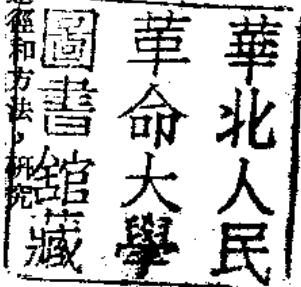 華北人民
革命大學
圖書舘藏
徑和方法，研究